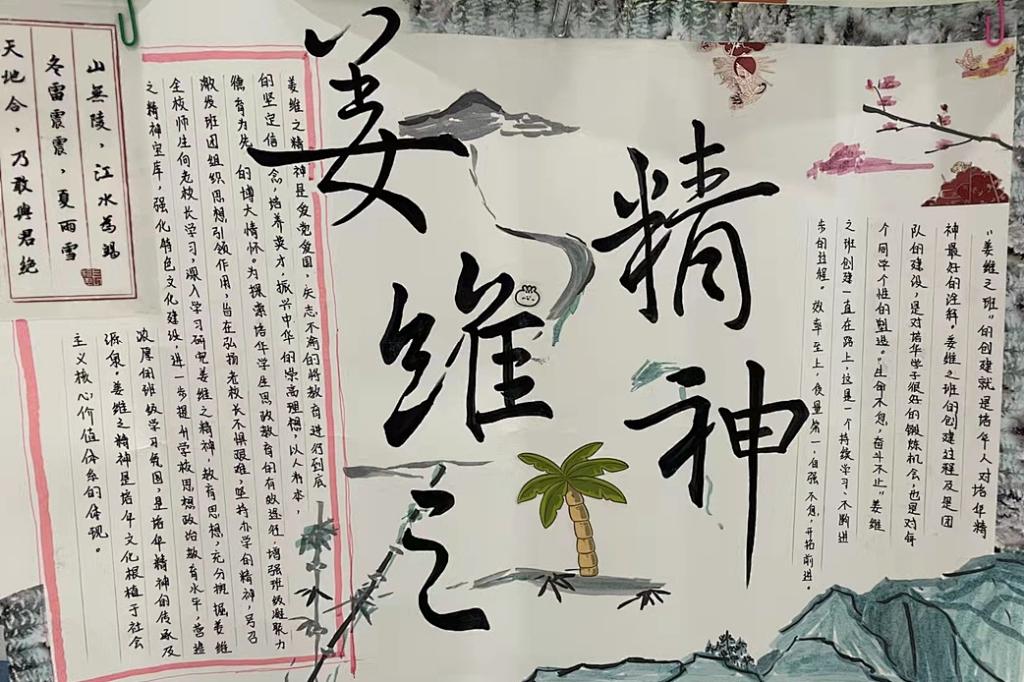 姜维之
精神
"姜维之班"的创建就是培华人对培华精
神最好的诠释。姜维之班的创建过程及是团
队的建设,是对培华学子很好的锻炼机会,也是对每
个同学个性的塑造。"生命不息,奋斗不止"姜维
之班创建一直在路上,这是一个持续学习、不断进
步的过程。效率至上,质量第一,自强不息,开拓前进。
姜维之精神是爱党爱国,矢志不渝的将教育进行到底
的坚定信念,培养英才,振兴中华的崇高理想,以人为本,
德育为先的博大情怀。为探索培华学生思政教育的有效途径,增强班级凝聚力
激发班团组织思想引领作用,旨在弘扬老校长不惧艰难,坚持办学的精神,号召
全校师生向老校长学习,深入学习研究姜维之精神,教育思想,充分挖掘姜维
之精神宝库,强化特色文化建设,进一步提升学校思想政治教育水平,营造
浓厚的班级学习氛围,是培华精神的传承及
源泉。姜维之精神是培华文化根植于社会
主义核心价值体系的体现。
山無陵,江水為竭
冬雷震震,夏雨雪
天地合,乃敢與君絶